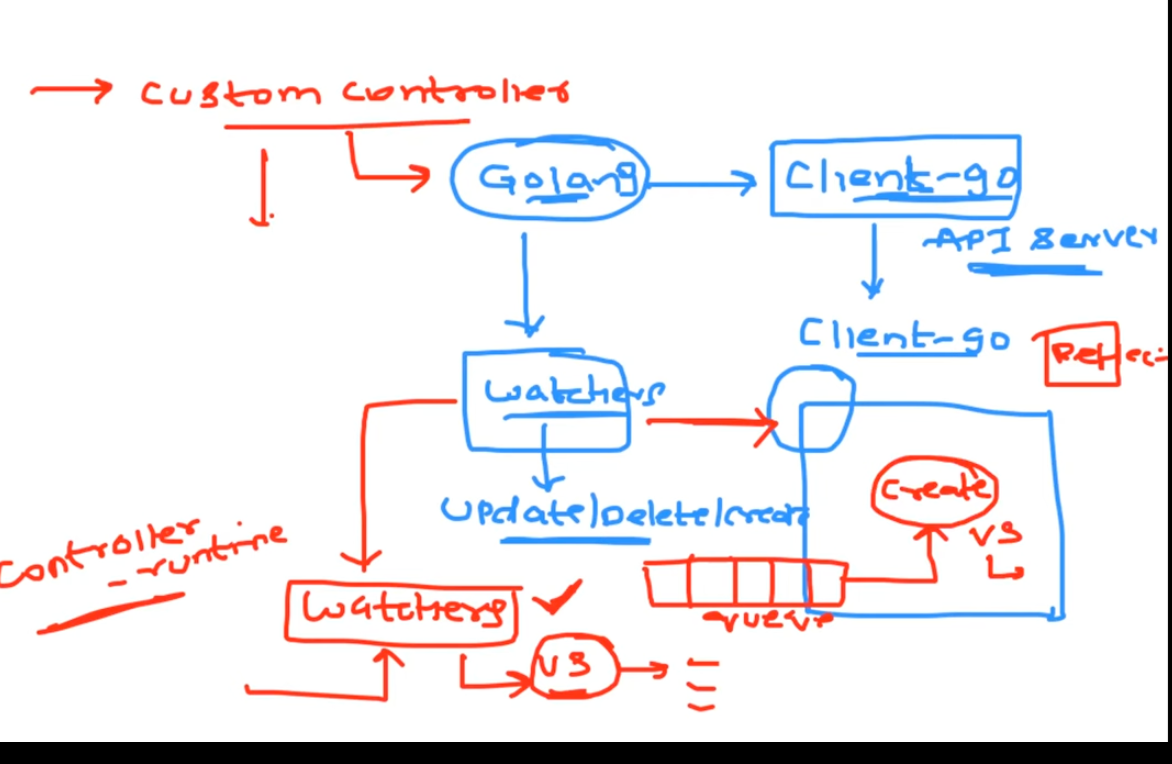 custom controller
Golang
Client-go
API Server
Client-go
Reflec
watchers
Update/Delete/Create
create
vs
Controller
-runtime
queue
watchers
vs